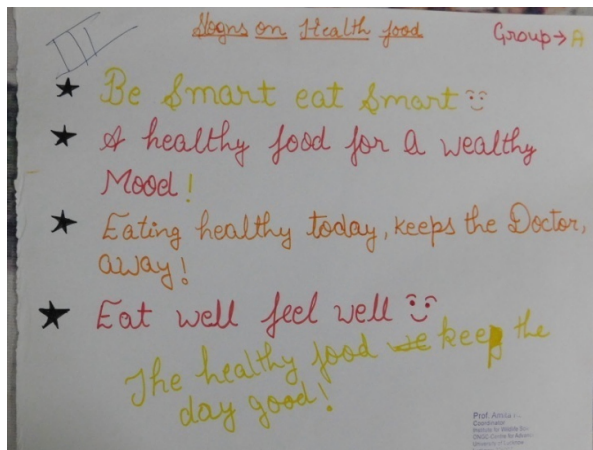 Slogns on Health food
Group→A
III
★ Be Smart eat Smart
★ A healthy food for a wealthy
Mood!
★ Eating healthy today, keeps the Doctor,
away!
★ Eat well feel well
The healthy food keep the
day good!
Prof.
Coordinator